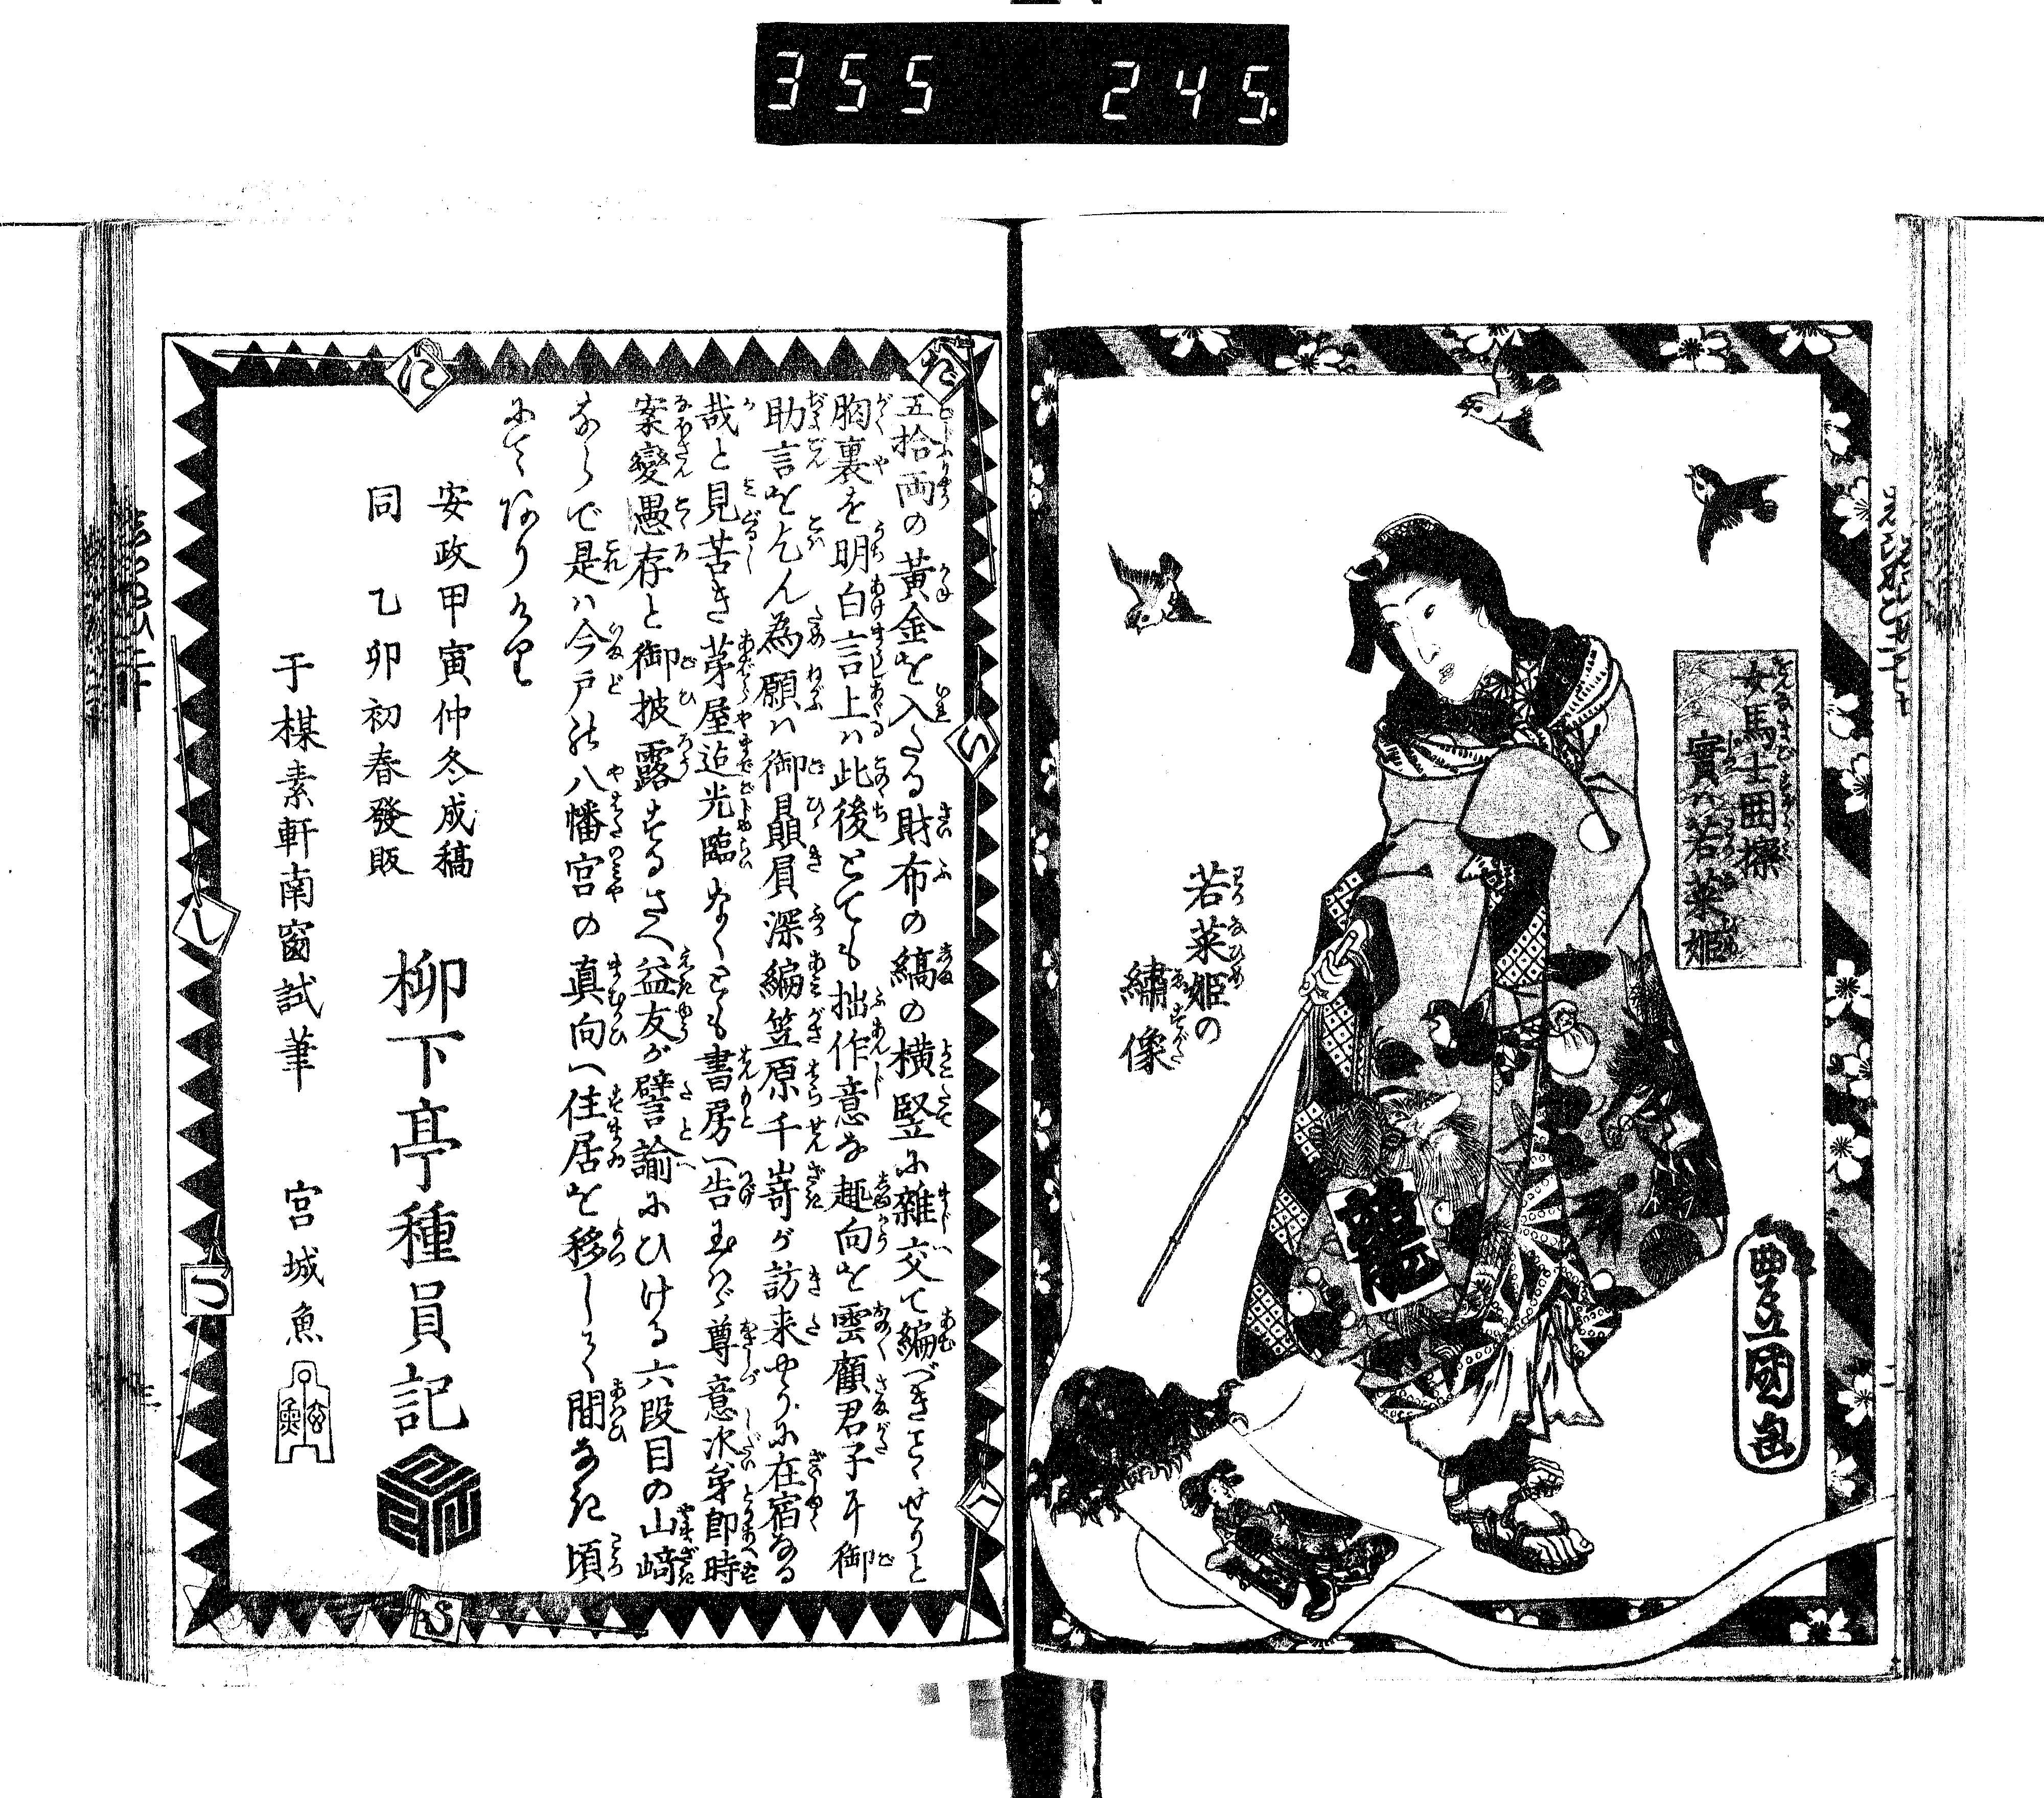 355 245
女馬士田撩
実ハ若菜姫
若菜姫の
繍像
龍
豊国画
五拾両の黄金を入たる財布の縞の横竪に雑交て編べきことせりと
胸裏を明白言上ハ此後とても拙作意な趣向を雲顧君子耳御
助言を乞ん為願ハ御贔屓深編笠原千嵜が訪来やうに在宿なる
哉と見苦き茅屋迠光臨なくとも書房へ告玉はゞ尊意次第即時
案變愚存と御披露するさへ益友が譬諭にひける六段目の山﨑
ならで是ハ今戸の八幡宮の真向へ住居を移して間なき頃
にてありける
安政甲寅仲冬成稿
同 乙卯初春發販
柳下亭種員記
于楳素軒南窗試筆
宮城魚
に
い
し
つ